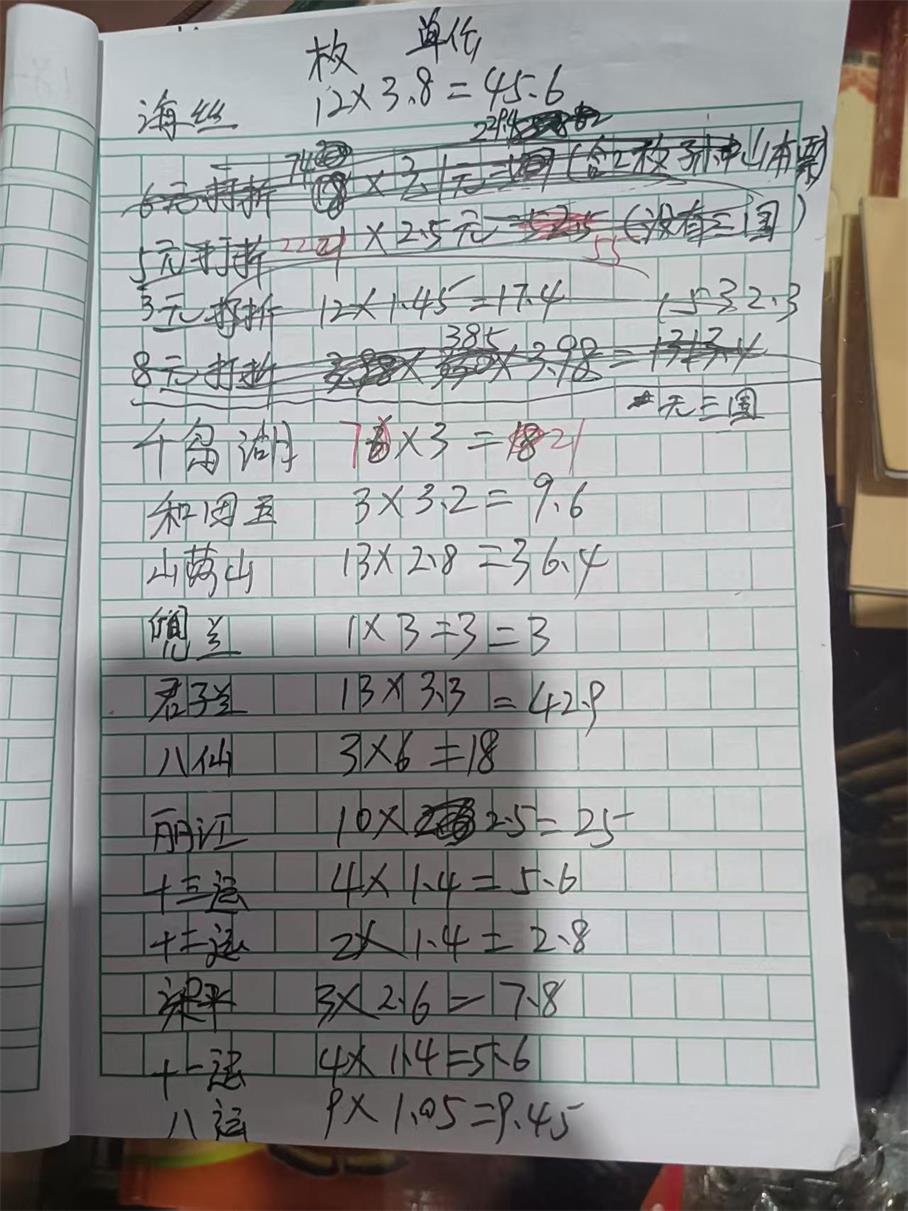 枚 单价
海丝 12×3.8=45.6
6元打折 74 ×3.1元= 229.4 (含2枚孙中山本票)
5元打折 22 ×2.5元=55 (没有三国)
3元打折 12×1.45=17.4 1532.3
8元打折 385×3.98=
无三国
千岛湖 7×3=21
和田玉 3×3.2=9.6
13×2.8=36.4
兰 1×3=3=3
君子兰 13×3.3=42.9
八仙 3×6=18
丽江 10×2.5=25
十三运 4×1.4=5.6
十二运 2×1.4=2.8
梁平 3×2.6=7.8
十一运 4×1.4=5.6
八运 9×1.05=9.45